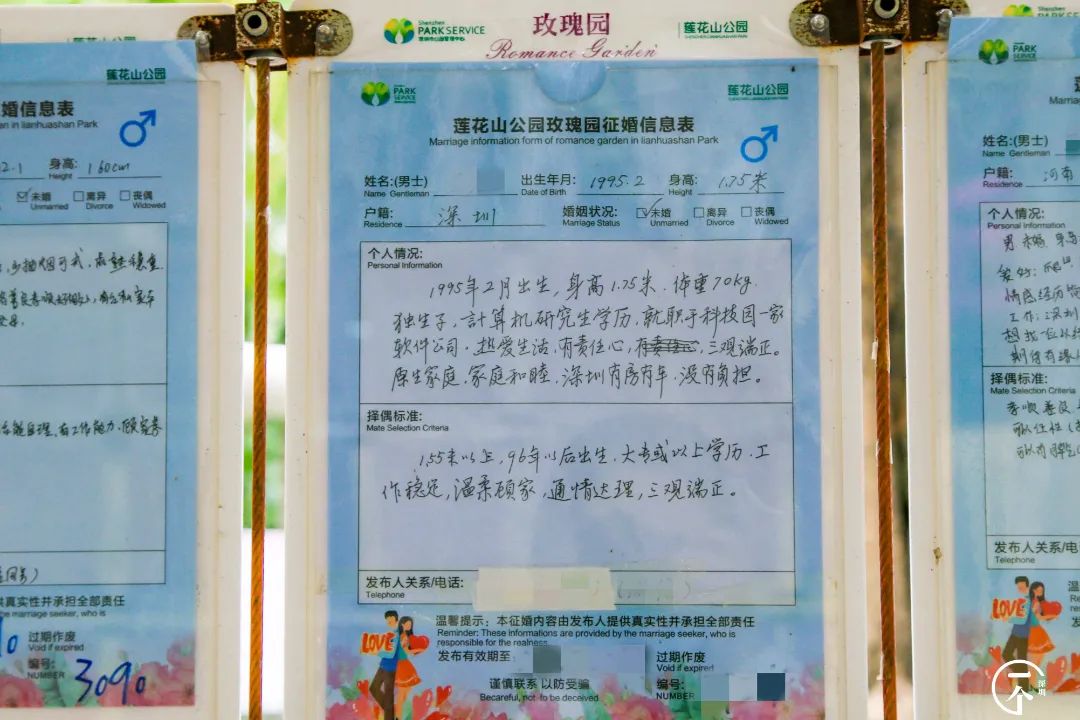 Shenzhen
PARK SERVICE
深圳市公园管理中心
玫瑰园
Romance Garden
莲花山公园
莲花山公园
婚信息表
en in lianhuashan Park
身高: 160cm
Height
未婚 离异 丧偶
Unmarried Divorce Widowed
供真实性并承担全部责任
the marriage seeker, who is
过期作废
Void if expired
编号:
NUMBER 3090
PARK
SERVICE
莲花山公园
莲花山公园玫瑰园征婚信息表
Marriage information form of romance garden in lianhuashan Park
姓名:(男士) 出生年月: 1995.2 身高: 1.75米
Name Gentleman Date of Birth Height
户籍: 深圳 婚姻状况: 未婚 离异 丧偶
Residence Marriage Status Unmarried Divorce Widowed
个人情况:
Personal Information
1995年2月出生,身高1.75米.体重70kg.
独生子,計算机研究生学历,就职于科技园一家
软件公司.热爱生活,有责任心,三观端正。
原生家庭.家庭和睦,深圳有房有车.没有负担。
择偶标准:
Mate Selection Criteria
1.55米以上,96年以后出生.大专或以上学历.工
作稳定,温柔顾家,通情达理,三观端正。
发布人关系/电话:
Telephone
温馨提示:本征婚内容由发布人提供真实性并承担全部责任
Reminder: These informations are provided by the marriage seeker, who is
responsible for the realness
发布有效期至: 过期作废
Void if expired
谨慎联系 以防受骗 编号:
Becareful, not to be deceived NUMBER
LOVE
PARK
SERVICE
姓名:(男士)
Name Gentleman
户籍: 河南
Residence
个人情况:
Personal Information
择偶标准:
Mate Selection Criteria
发布人关系/电
Telephone
LOVE
深圳